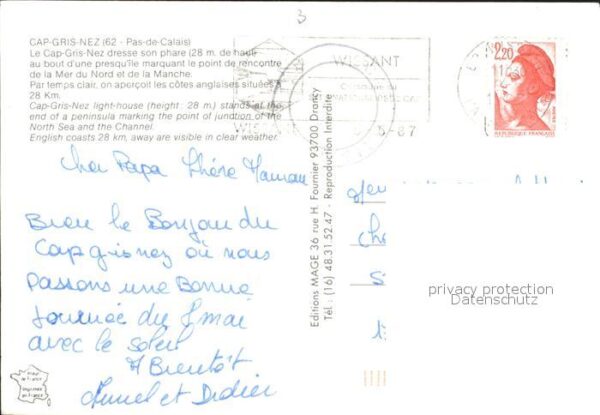 3
CAP-GRIS-NEZ (62 - Pas-de-Calais)
Le Cap-Gris-Nez dresse son phare (28 m. de haut)
au bout d'une presqu'île marquant le point de rencontre
de la Mer du Nord et de la Manche.
Par temps clair, on aperçoit les côtes anglaises situées à
28 Km.
Cap-Gris-Nez light-house (height 28 m) stands at the
end of a peninsula marking the point of junction of the
North Sea and the Channel.
English coasts 28 km, away are visible in clear weather.
WISSANT
5-87
2,20
REPUBLIQUE FRANÇAISE
Cher Papa Chère Maman
Bien le Bonjour du
Cap gris nez où nous
Passons une Bonne
Journée du 8 mai
avec le soleil
A Bientôt
et Didier
Editions MAGE 36 rue H. Fournier 93700 Drancy
Tél. : (16) 48.31.52 47 - Reproduction Interdite
privacy protection
Datenschutz